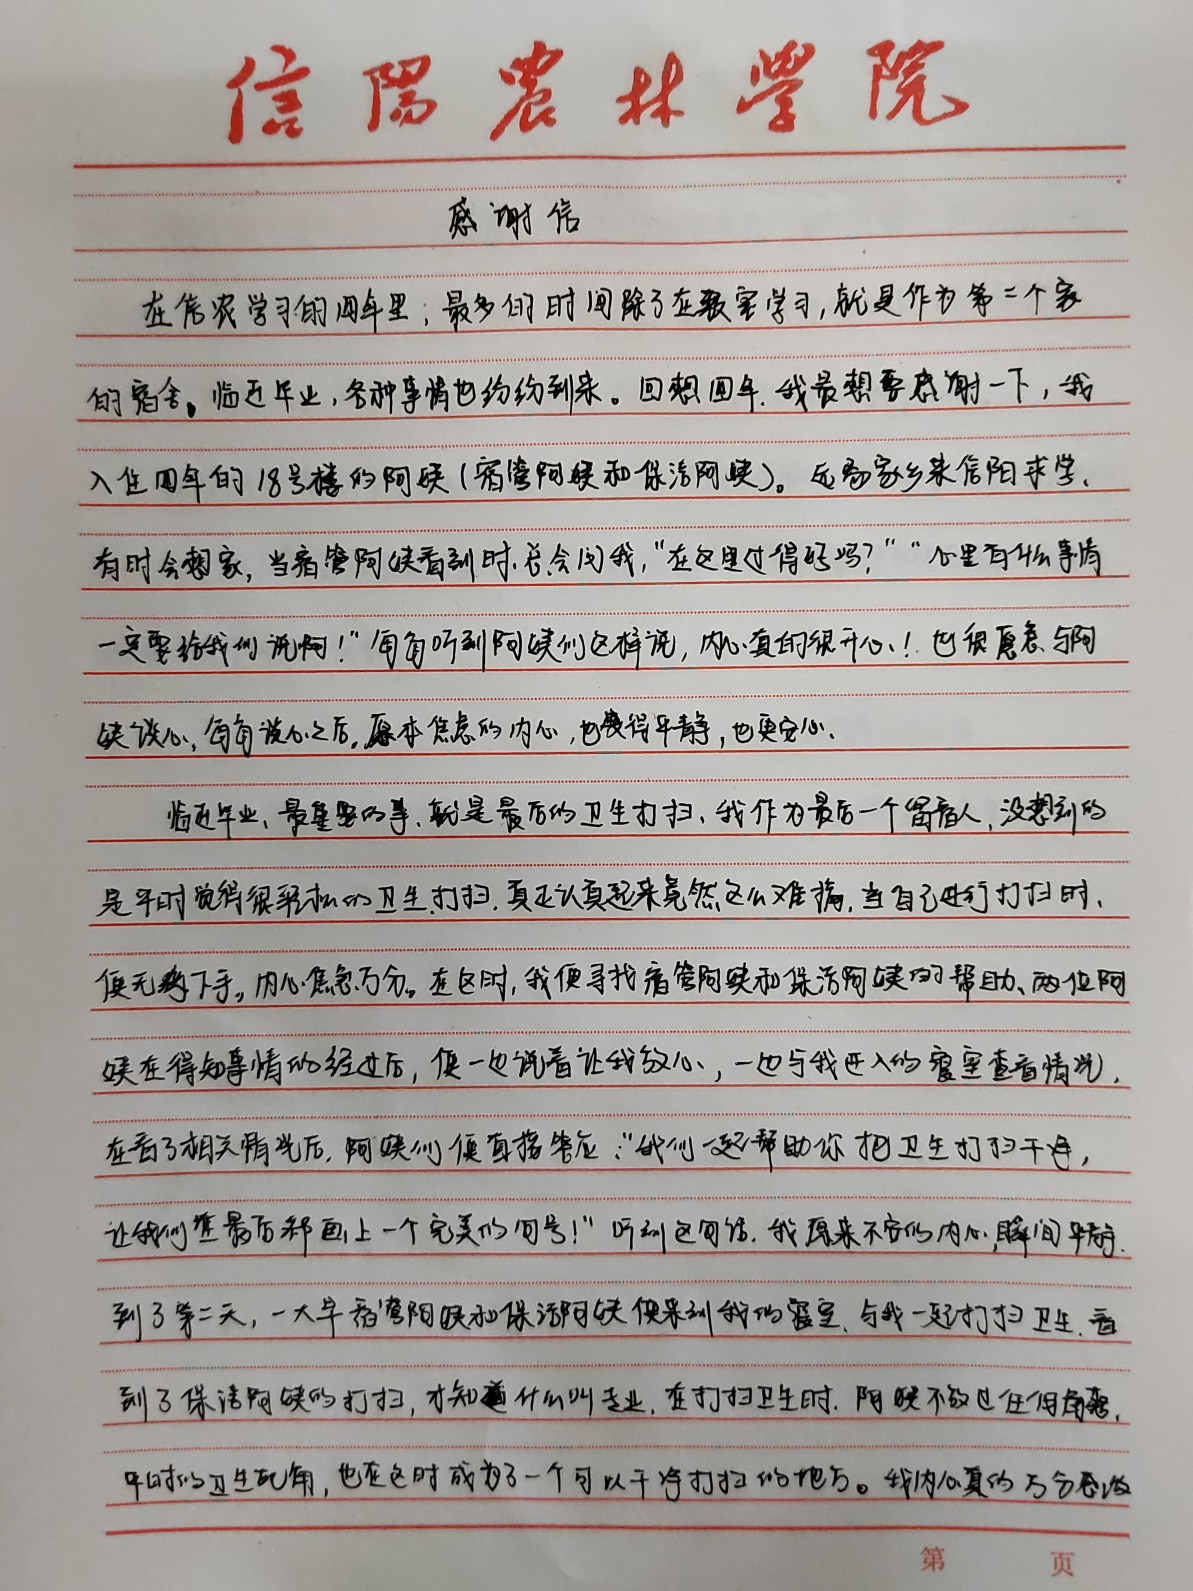 信陽農林學院
感谢信
在信农学习的四年里，最多的时间除了在教室学习，就是作为第二个家
的宿舍。临近毕业，各种事情也纷纷到来。回想四年，我最想要感谢一下，我
入住四年的18号楼的阿姨（宿管阿姨和保洁阿姨）。远离家乡来信阳求学，
有时会想家，当宿管阿姨看到时，总会问我，“在这里过得好吗？”“心里有什么事情
一定要给我们说啊！”每每听到阿姨们这样说，内心真的很开心！也很愿意与阿
姨谈心，每每谈心之后，原本焦虑的内心，也变得平静，也更安心。
临近毕业，最重要的事，就是最后的卫生打扫，我作为最后一个留宿人，没想到的
是平时觉得很轻松的卫生打扫，真正认真起来竟然这么难搞，当自己进行打扫时，
便无从下手。内心焦急万分。在这时，我便寻找宿管阿姨和保洁阿姨的帮助、两位阿
姨在得知事情的经过后，便一边说着让我放心，一边与我进入的寝室查看情况，
在看了相关情况后，阿姨们便直接答应：“我们一起帮助你把卫生打扫干净，
让我们在最后都画上一个完美的句号！”听到这句话，我原来不安的内心，瞬间平静.
到了第二天，一大早宿管阿姨和保洁阿姨便来到我的寝室，与我一起打扫卫生，看
到了保洁阿姨的打扫，才知道什么叫专业，在打扫卫生时，阿姨不放过任何角落，
平时的卫生死角，也在这时成为了一个可以干净打扫的地方。我内心真的万分感激
第 页